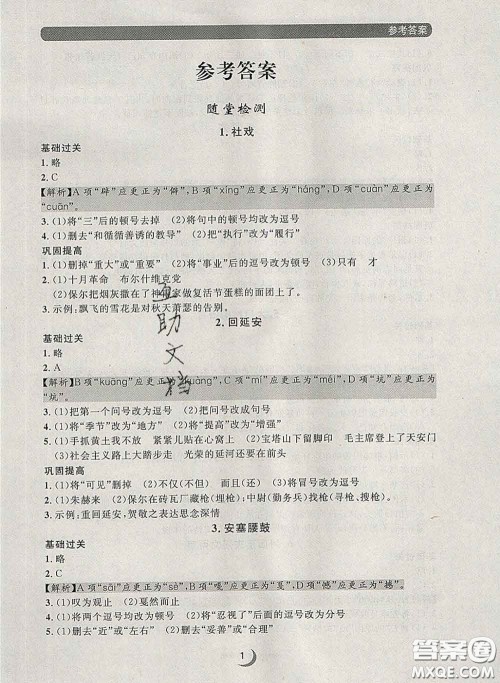 参考答案
参考答案
随堂检测
1.社戏
基础过关
1.略
2.C
【解析】A项“辟”应更正为“僻”,B项“xíng”应更正为“háng”,D项“cuàn”应更正为
“cuān”。
3.(1)将“三”后的顿号去掉 (2)将句中的顿号均改为逗号
4.(1)删去“和循循善诱的教导” (2)把“执行”改为“履行”
巩固提高
1.(1)删掉“重大”或“重要” (2)将“事业”后的逗号改为顿号 (3)只有 才
2.(1)十月革命 布尔什维克党
(2)保尔把烟灰撒在了神父家做复活节蛋糕的面团上了。
3.示例:飘飞的雪花是对秋天萧瑟的告别。
2.回延安
基础过关
1.略
2.A
【解析】B项“kuāng”应更正为“kuàng”,C项“mí”应更正为“méi”,D项“吭”应更正为
“坑”。
3.(1)把第一个问号改为逗号 (2)把问号改成句号
4.(1)将“季节”改为“地方” (2)将“提高”改为“增强”
5.(1)手抓黄土我不放 紧紧儿贴在心窝上 (2)宝塔山下留脚印 毛主席登上了天安门
(3)社会主义路上大踏步走 光荣的延河还要在前头
巩固提高
1.(1)将“可见”删掉 (2)不仅(不但) 而且(还) (3)将逗号改为句号
2.(1)朱赫来 (2)保尔在砖瓦厂藏枪(埋枪);中尉(勤务兵)找枪(寻枪、搜枪)。
3.示例:重回延安,贺敬之表达思念深情
3.安塞腰鼓
基础过关
1.略
2.C
【解析】A项“sāi”应更正为“sè”,B项“嘎”应更正为“戛”,D项“憾”应更正为“撼”。
3.(1)叹为观止 (2)戛然而止
4.(1)将两个逗号均改为顿号 (2)将“忽视了”后面的逗号改为分号
5.(1)删去“近”或“左右” (2)删去“妥善”或“合理”
1
互助文档
答案圈
MXQE.COM